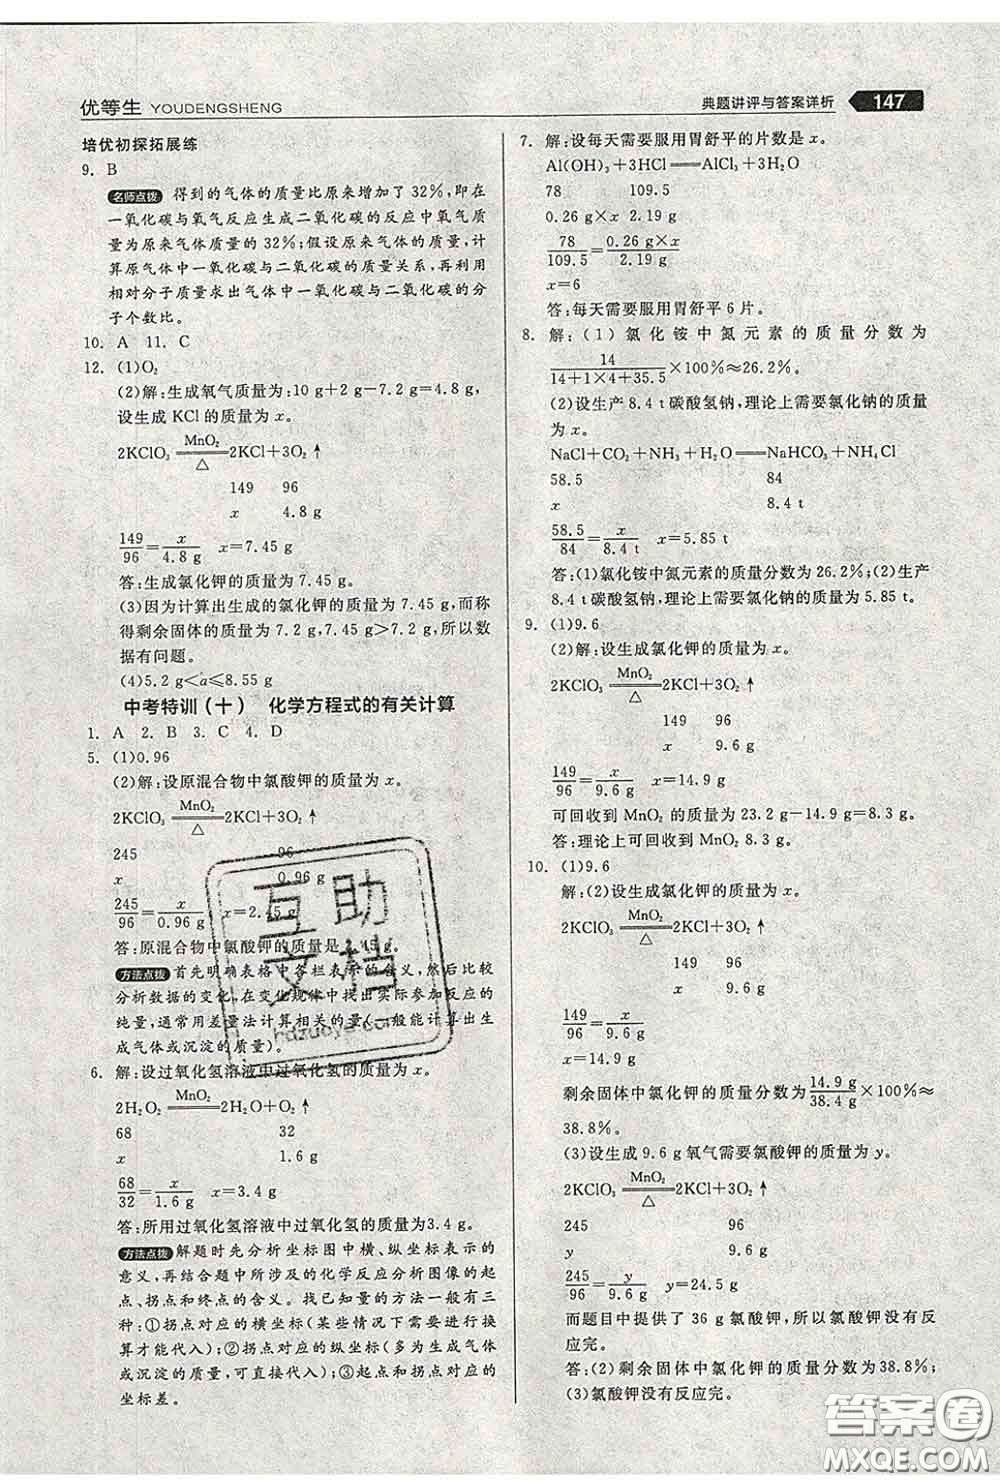 优等生 YOUDENGSHENG
典题讲评与答案详析 147
培优初探拓展练
9. B
名师点拨 得到的气体的质量比原来增加了 32%,即在
一氧化碳与氧气反应生成二氧化碳的反应中氧气质
量为原来气体质量的 32%;假设原来气体的质量,计
算原气体中一氧化碳与二氧化碳的质量关系,再利用
相对分子质量求出气体中一氧化碳与二氧化碳的分
子个数比。
10. A 11. C
12. (1)O₂
(2)解:生成氧气质量为:10 g+2 g−7.2 g=4.8 g,
设生成 KCl 的质量为 x。
MnO₂
2KClO₃ ══ 2KCl+3O₂↑
△
149 96
x 4.8 g
149/96=x/4.8 g x=7.45 g
答:生成氯化钾的质量为 7.45 g。
(3)因为计算出生成的氯化钾的质量为 7.45 g,而称
得剩余固体的质量为 7.2 g,7.45 g>7.2 g,所以数
据有问题。
(4)5.2 g<a≤8.55 g
中考特训(十) 化学方程式的有关计算
1. A 2. B 3. C 4. D
5. (1)0.96
(2)解:设原混合物中氯酸钾的质量为 x。
MnO₂
2KClO₃ ══ 2KCl+3O₂↑
△
245 96
x 0.96 g
245/96=x/0.96 g x=2.45 g
答:原混合物中氯酸钾的质量是 2.45 g。
方法点拨 首先明确表格中各栏表示的含义,然后比较
分析数据的变化,在变化规律中找出实际参加反应的
纯量,通常用差量法计算相关的量(一般能计算出生
成气体或沉淀的质量)。
6. 解:设过氧化氢溶液中过氧化氢的质量为 x。
MnO₂
2H₂O₂ ══ 2H₂O+O₂↑
68 32
x 1.6 g
68/32=x/1.6 g x=3.4 g
答:所用过氧化氢溶液中过氧化氢的质量为3.4 g。
方法点拨 解题时先分析坐标图中横、纵坐标表示的
意义,再结合题中所涉及的化学反应分析图像的起
点、拐点和终点的含义。找已知量的方法一般有三
种:①拐点对应的横坐标(某些情况下需要进行换
算才能代入);②拐点对应的纵坐标(多为生成气体
或沉淀的质量,可直接代入);③起点与拐点对应的
坐标差。
7. 解:设每天需要服用胃舒平的片数是 x。
Al(OH)₃+3HCl══AlCl₃+3H₂O
78 109.5
0.26 g×x 2.19 g
78/109.5=0.26 g×x/2.19 g
x=6
答:每天需要服用胃舒平 6 片。
8. 解:(1)氯化铵中氮元素的质量分数为
14/(14+1×4+35.5)×100%≈26.2%
(2)设生产 8.4 t碳酸氢钠,理论上需要氯化钠的质量
为 x。
NaCl+CO₂+NH₃+H₂O══NaHCO₃+NH₄Cl
58.5 84
x 8.4 t
58.5/84=x/8.4 t x=5.85 t
答:(1)氯化铵中氮元素的质量分数为 26.2%;(2)生产
8.4 t碳酸氢钠,理论上需要氯化钠的质量为 5.85 t。
9. (1)9.6
(2)解:设生成氯化钾的质量为 x。
MnO₂
2KClO₃ ══ 2KCl+3O₂↑
△
149 96
x 9.6 g
149/96=x/9.6 g x=14.9 g
可回收到 MnO₂ 的质量为 23.2 g−14.9 g=8.3 g。
答:理论上可回收到 MnO₂ 8.3 g。
10. (1)9.6
解:(2)设生成氯化钾的质量为 x。
MnO₂
2KClO₃ ══ 2KCl+3O₂↑
△
149 96
x 9.6 g
149/96=x/9.6 g
x=14.9 g
剩余固体中氯化钾的质量分数为14.9 g/38.4 g×100%≈
38.8%。
(3)设生成 9.6 g 氧气需要氯酸钾的质量为 y。
MnO₂
2KClO₃ ══ 2KCl+3O₂↑
△
245 96
y 9.6 g
245/96=y/9.6 g y=24.5 g
而题目中提供了 36 g 氯酸钾,所以氯酸钾没有反
应完。
答:(2)剩余固体中氯化钾的质量分数为 38.8%;
(3)氯酸钾没有反应完。
互助
文档
hdzuoye.com
答案圈
MXQE.COM